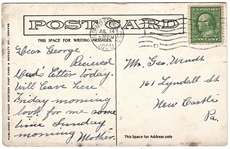 POST CARD
THIS SPACE FOR WRITING MESSAGES.
Dear George,
Recieved
Dad's letter today.
Will leave here
Friday morning
look for me some
time Sunday
morning
Mother.
Mr. Geo. Wendt
161 Lyndall St
New Castle
Pa.
This Space for Address only